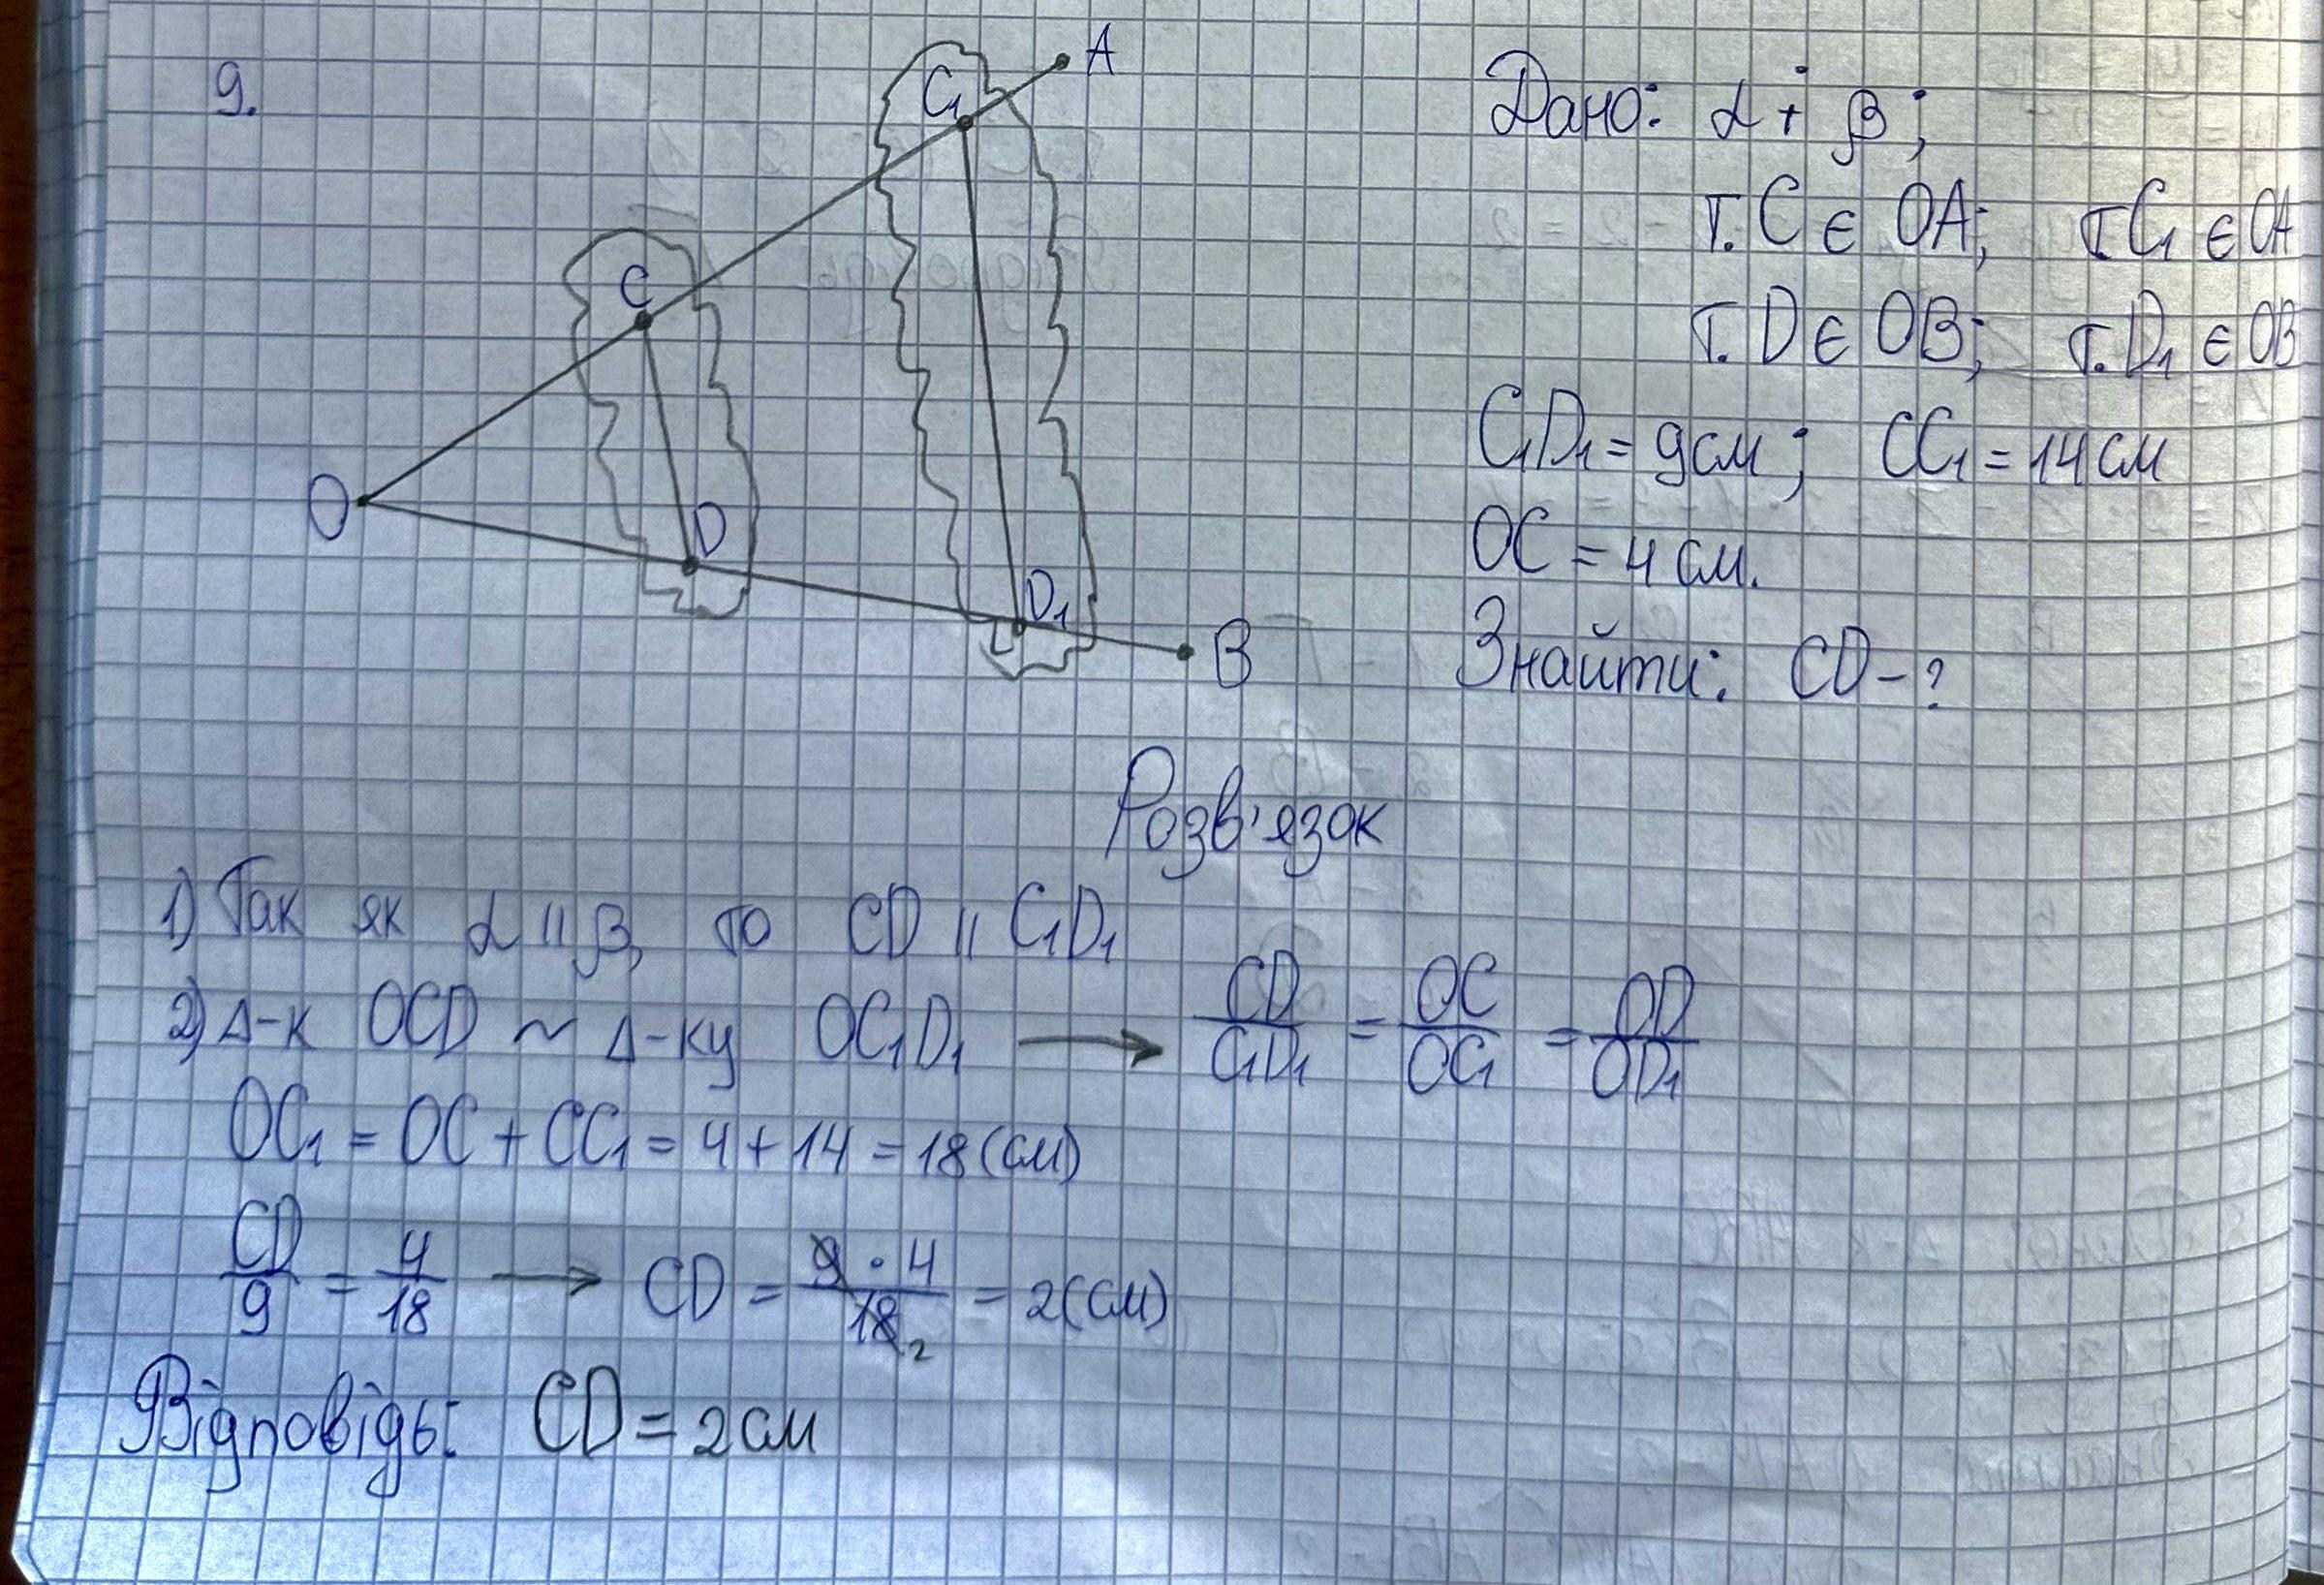 9.
A
C₁
C
O
D
D₁
B
Дано: α і β;
т. C є OA; т. C₁ є OA
т. D є OB; т. D₁ є OB
C₁D₁ = 9 см; CC₁ = 14 см
OC = 4 см.
Знайти: CD - ?
Розв'язок
1) Так як α || β, то CD || C₁D₁
2) Δ-к OCD ~ Δ-ку OC₁D₁ → CD/C₁D₁ = OC/OC₁ = OD/OD₁
OC₁ = OC + CC₁ = 4 + 14 = 18 (см)
CD/9 = 4/18 → CD = 9 · 4/18 2 = 2 (см)
Відповідь: CD = 2 см